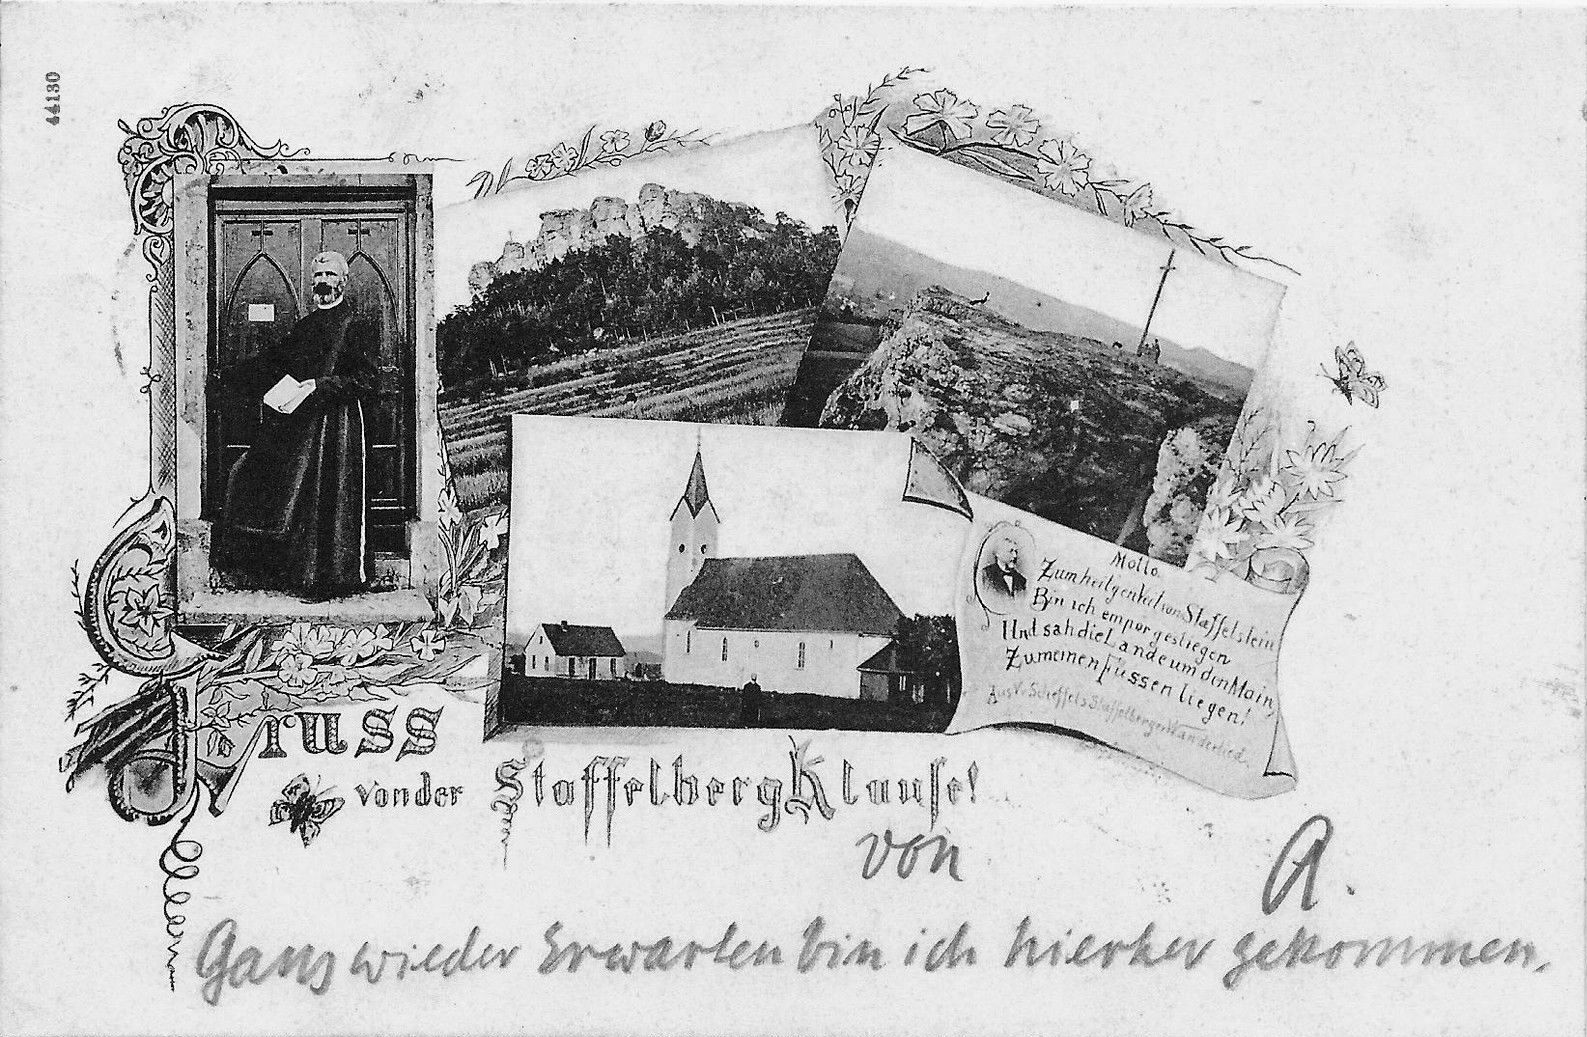 44130
Gruss
von der Staffelberg Klause!
Motto.
Zum heilgen Veit von Staffelstein
Bin ich emporgestiegen
Und sah die Lande um den Main
Zu meinen Füssen liegen!
Aus V. Scheffels Staffelberger Wanderlied.
von A.
Ganz wieder Erwarten bin ich hierher gekommen.